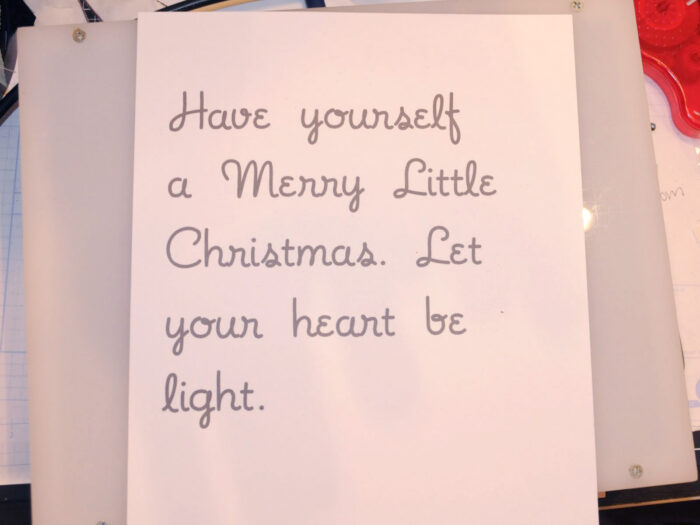 Have yourself
a Merry Little
Christmas. Let
your heart be
light.